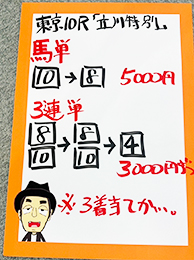 東京10R「立川特別」
馬単
10→8 5000円
3連単
8/10→8/10→4
3000円ずつ
※3着当てかい…。